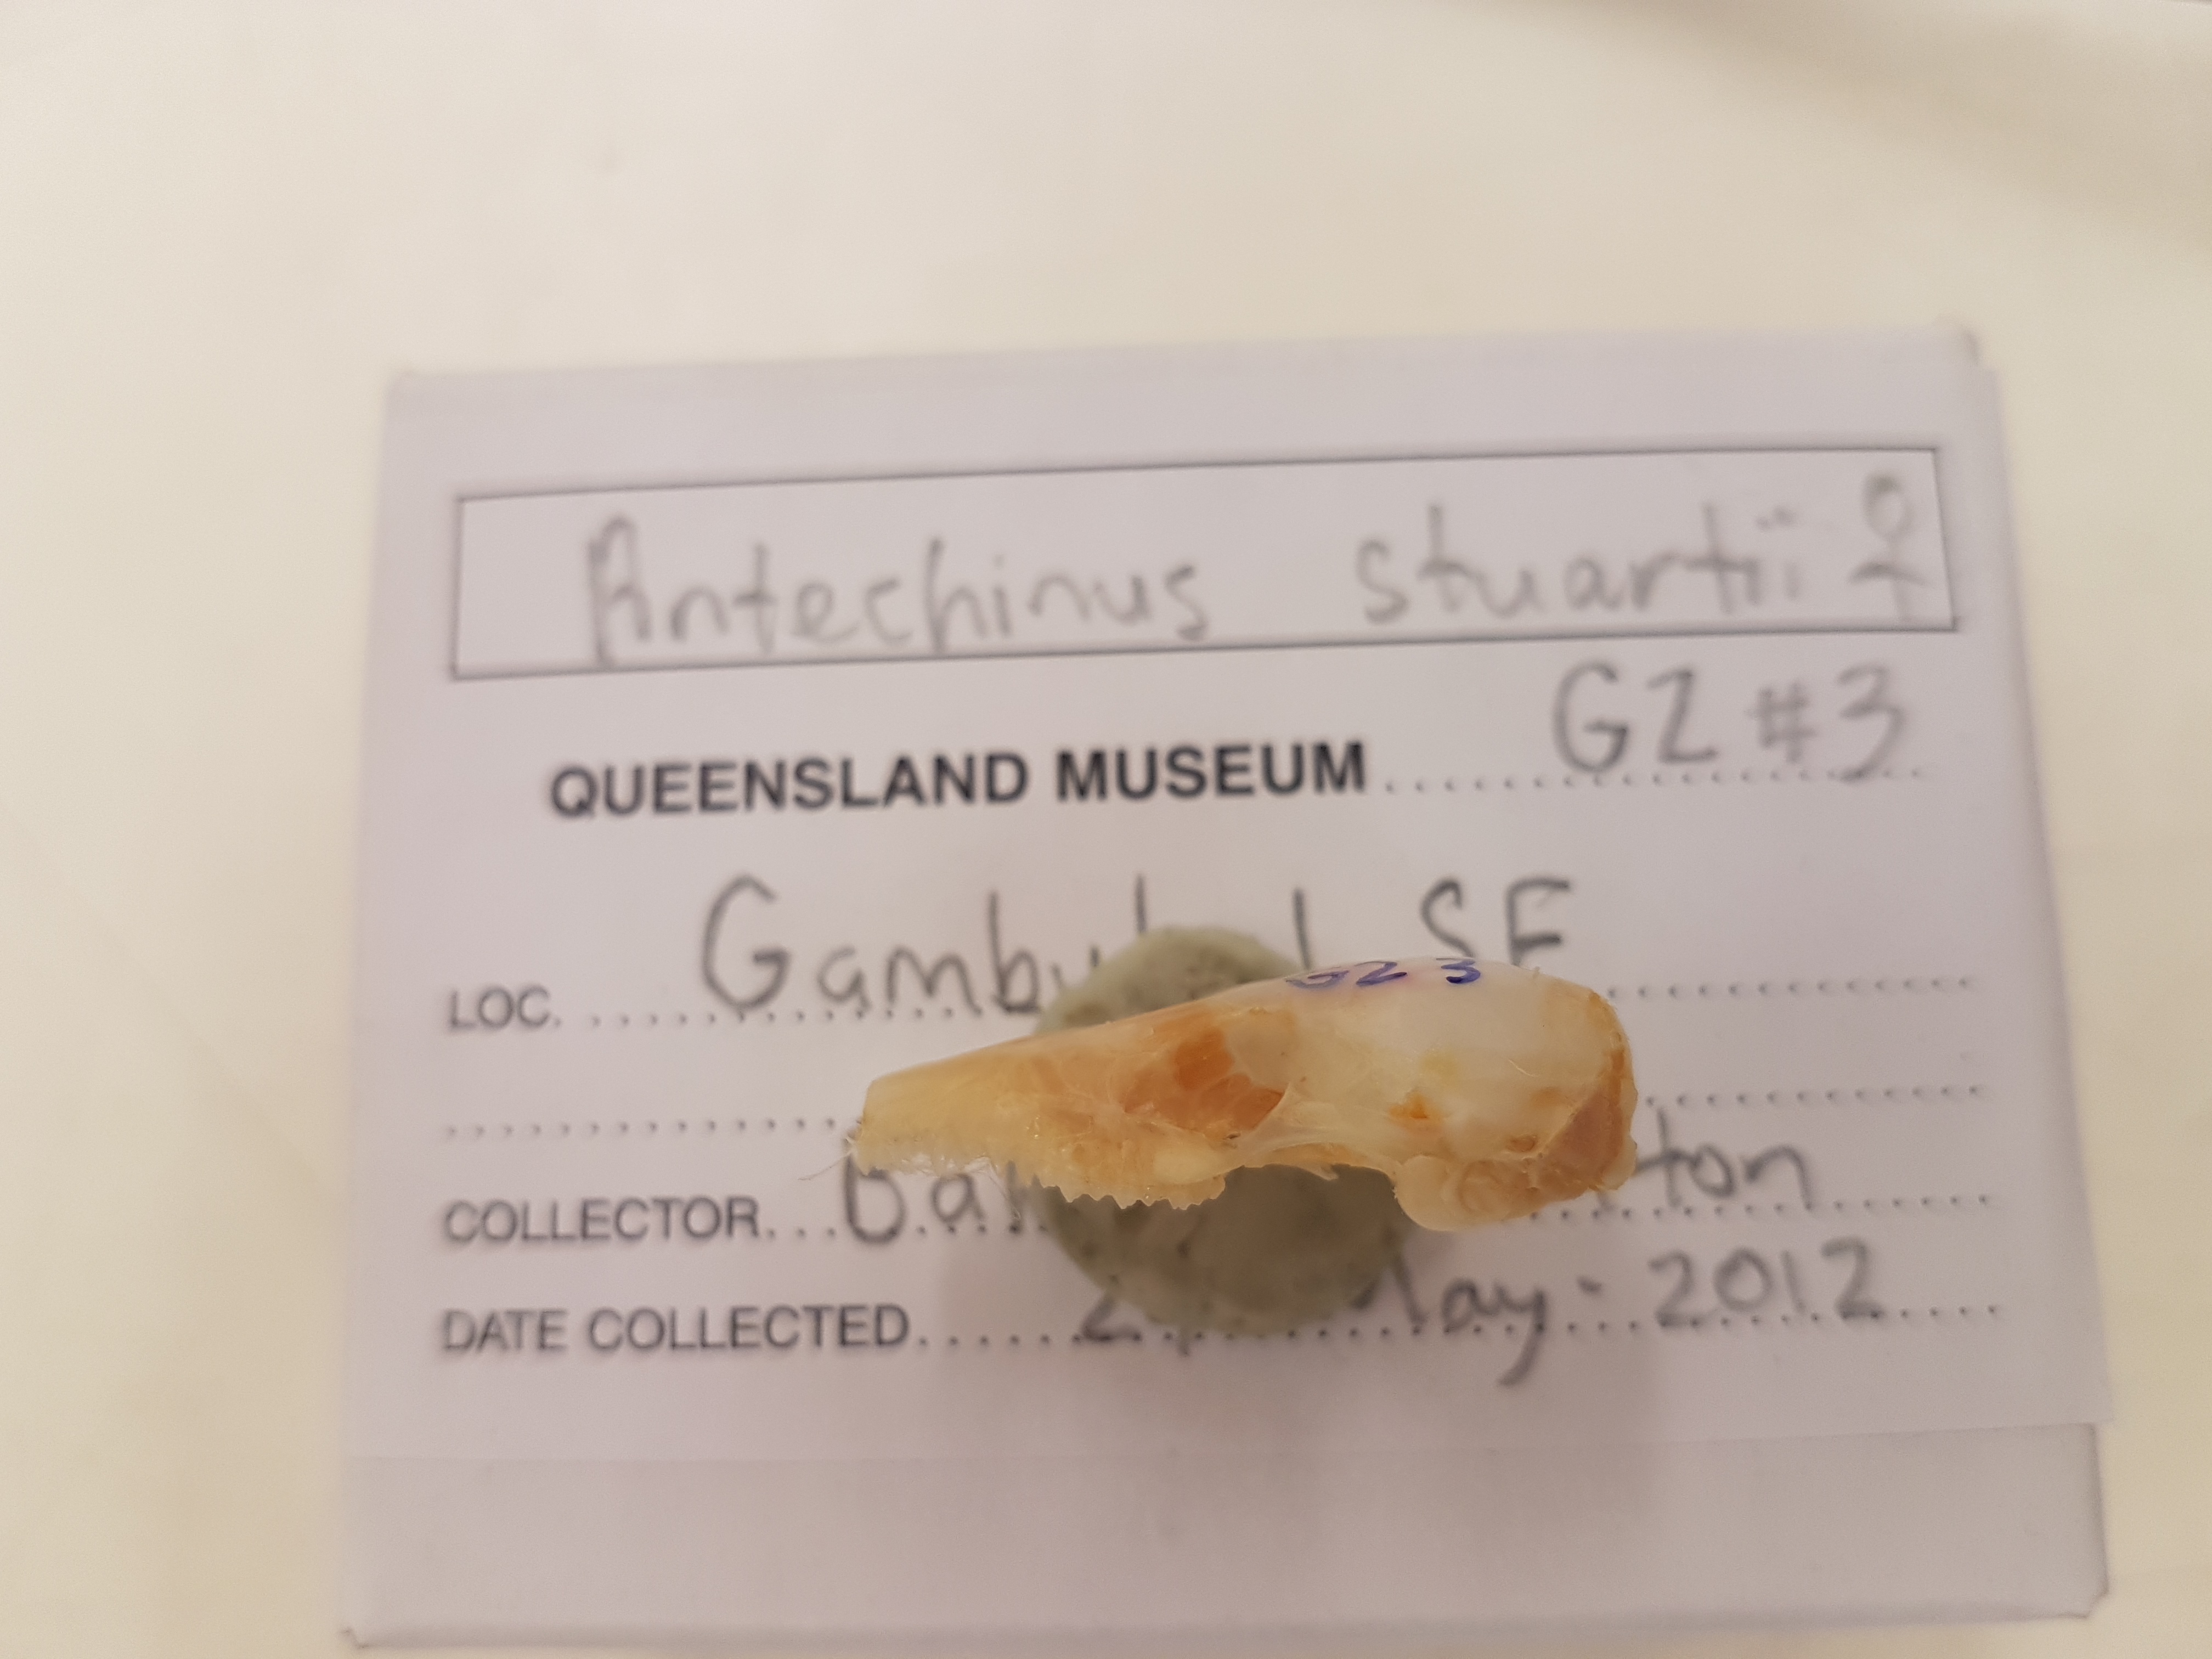 Antechinus stuartii ♀
QUEENSLAND MUSEUM G2 #3
LOC. SF
G2 3
COLLECTOR
DATE COLLECTED May - 2012